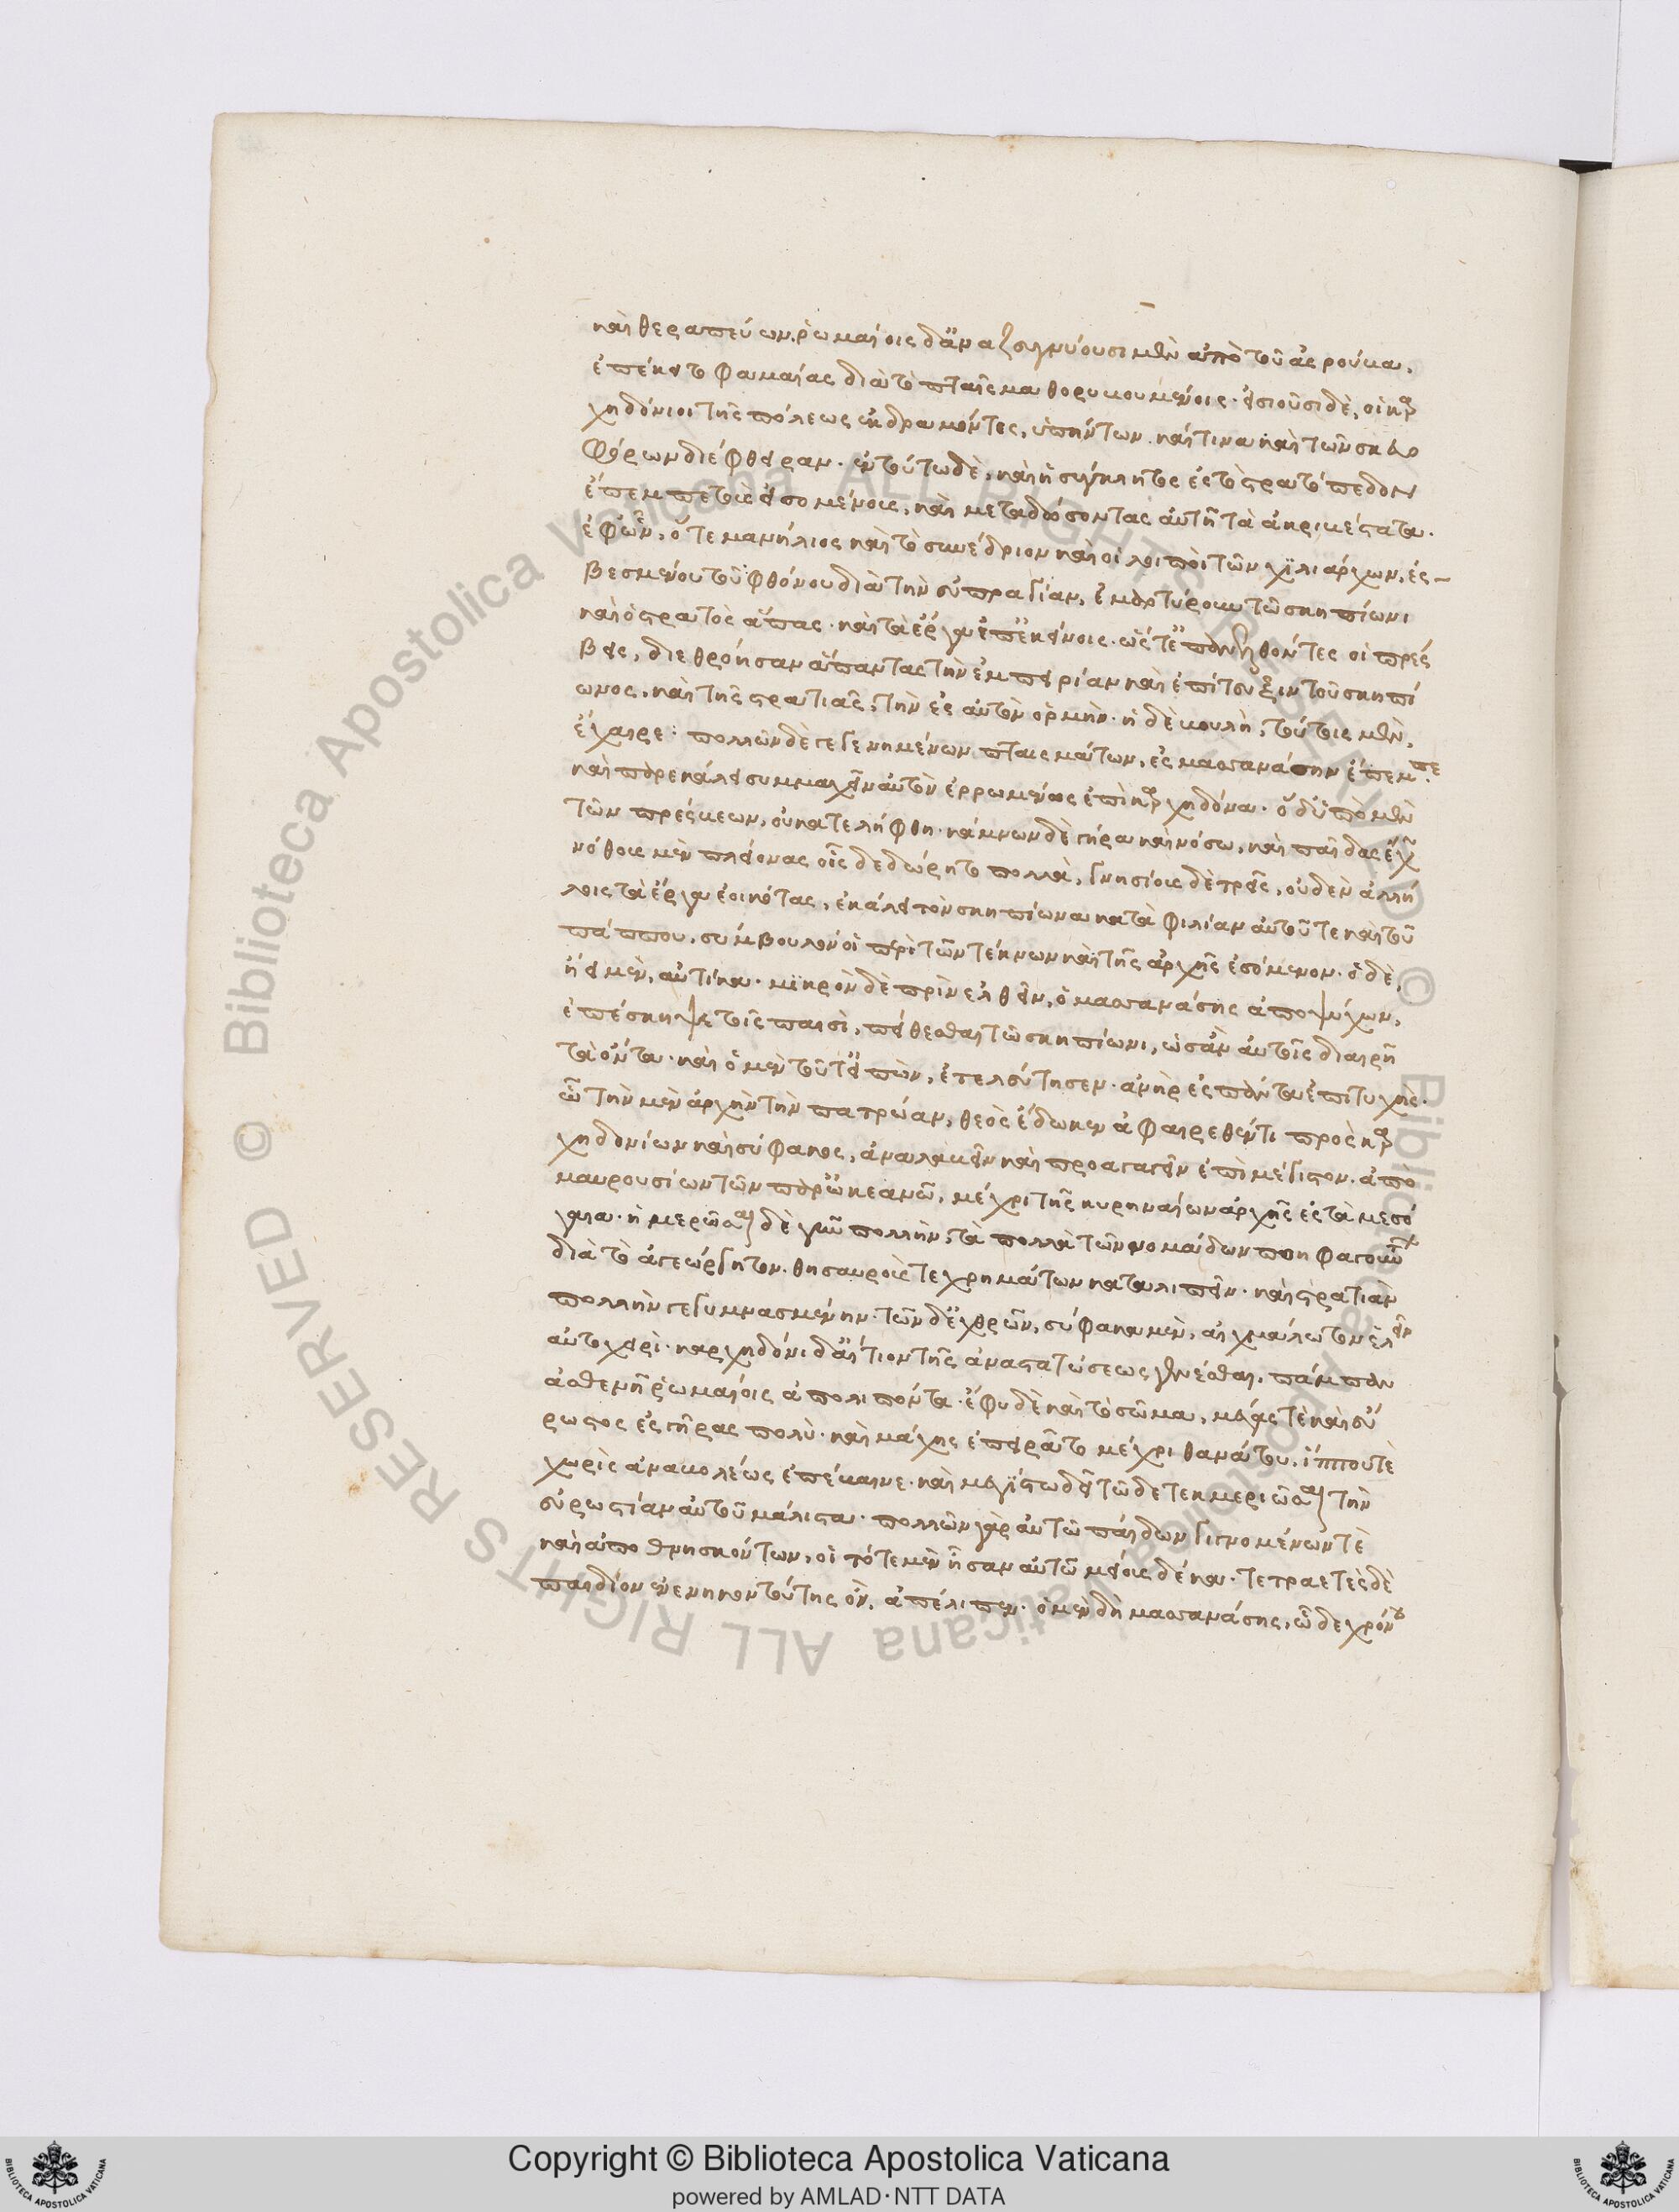 καὶ θεραπεύων. ῥωμαίοις δ᾽ ἀναζευγνύουσι μὲν ἀπὸ τοῦ ἀσρούβα.
ἐπέκειτο φαμαίας διὰ τὸ πταῖσμα θορυβουμένοις. ἐσιοῦσι δὲ, οἱ καρ
χηδόνιοι τῆς πόλεως ἐκδραμόντες, ὑπήντων. καί τινα καὶ τῶν σκευο
φόρων διέφθειραν. ἐν τούτω δὲ, καὶ ἡ σύγκλητος ἐς τὸ στρατόπεδον
ἔπεμπε τοὺς εἰσομένους, καὶ μεταδώσοντας αὐτῆ τὰ ἀκριβέστατα.
ἐφ᾽ ὧν, ὅ τε μανήλιος καὶ τὸ συνέδριον καὶ οἱ λοιποὶ τῶν χιλιάρχων, ἐσ
βεσμένου τοῦ φθόνου διὰ τὴν εὐπραγίαν, ἐμαρτύρουν τῶ σκηπίωνι
καὶ ὁ στρατὸς ἅπας. καὶ τὰ ἔργα ἐπ᾽ ἐκείνοις. ὥστε ἐπανελθόντες οἱ πρέσ
βεις, διεθρόησαν ἅπαντας τὴν ἐμπειρίαν καὶ ἐπίτευξιν τοῦ σκηπί
ωνος, καὶ τῆς στρατιᾶς, τὴν ἐς αὐτὸν ὁρμήν. ἡ δὲ βουλὴ, τούτοις μὲν,
ἔχαιρε. πολλῶν δὲ γεγενημένων πταισμάτων, ἐς μασσανάσσην ἔπεμπε
καὶ παρεκάλει συμμαχεῖν αὐτὸν ἐρρωμένως ἐπὶ καρχηδόνα. ὁ δ᾽ ὑπὸ μὲν
τῶν πρέσβεων, οὐ κατελήφθη. κάμνων δὲ γήρα καὶ νόσω, καὶ παῖδας ἔχων
νόθους μὲν πλείονας οἷς δεδώρητο πολλὰ, γνησίους δὲ τρεῖς, οὐδὲν ἀλλή
λοις τὰ ἔργα ἐοικότας, ἐκάλει τὸν σκηπίωνα κατὰ φιλίαν αὑτοῦ τε καὶ τοῦ
πάππου, σύμβουλόν οἱ περὶ τῶν τέκνων καὶ τῆς ἀρχῆς ἐσόμενον. ὁ δὲ,
ἤει μὲν, αὐτίκα. μικρὸν δὲ πρὶν ἐλθεῖν, ὁ μασσανάσσης ἀποψύχων,
ἐπέσκηψε τοῖς παισὶ, πείθεσθαι τῶ σκηπίωνι, ὡς ἂν αὐτοῖς διαιρῆ
τὰ ὄντα. καὶ ὁ μὲν τοῦτ᾽ εἰπὼν, ἐτελεύτησεν. ἀνὴρ ἐς πάντα ἐπιτυχής.
ὧ τὴν μὲν ἀρχὴν τὴν πατρώαν, θεὸς ἔδωκεν ἀφαιρεθέντι πρὸς καρ
χηδονίων καὶ σύφακος, ἀναλαβεῖν καὶ προαγαγεῖν ἐπὶ μέγιστον. ἀπὸ
μαυρουσίων τῶν παρ᾽ ὠκεανῶ, μέχρι τῆς κυρηναίων ἀρχῆς ἐς τὰ μεσό
γαια. ἡμερῶσαι δὲ γῆν πολλὴν, τὰ πολλὰ τῶν νομάδων ποηφαγούντων
διὰ τὸ ἀγεώργητον. θησαυρούς τε χρημάτων καταλιπεῖν. καὶ στρατιὰν
πολλὴν γεγυμνασμένην. τῶν δ᾽ ἐχθρῶν, σύφακα μὲν, αἰχμάλωτον ἑλεῖν
αὐτοχειρί. καρχηδόνι δ᾽ αἴτιον τῆς ἀναστατώσεως γενέσθαι. πάμπαν
ἀσθενῆ ῥωμαίοις ἀπολιπόντα. ἔφυ δὲ καὶ τὸ σῶμα, μέγας τὲ καὶ εὔ
ρωστος ἐς γῆρας πολύ. καὶ μάχης ἐπειρᾶτο μέχρι θανάτου. ἵππου τὲ
χωρὶς ἀναβολέως ἐπέβαινε. καὶ μεγίστω δεῖ τῶδε τεκμηριῶσαι τὴν
εὐρωστίαν αὐτοῦ μάλιστα. πολλῶν γὰρ αὐτῶ παίδων γιγνομένων τὲ
καὶ ἀποθνησκόντων, οἱ τότε μὲν ἦσαν αὐτῶ μείους δέκα. τετραετὲς δὲ
παιδίον ἐνενηκοντούτης ὢν, ἀπέλιπεν. ὁ μὲν δὴ μασσανάσσης, ὧδε χρόνου